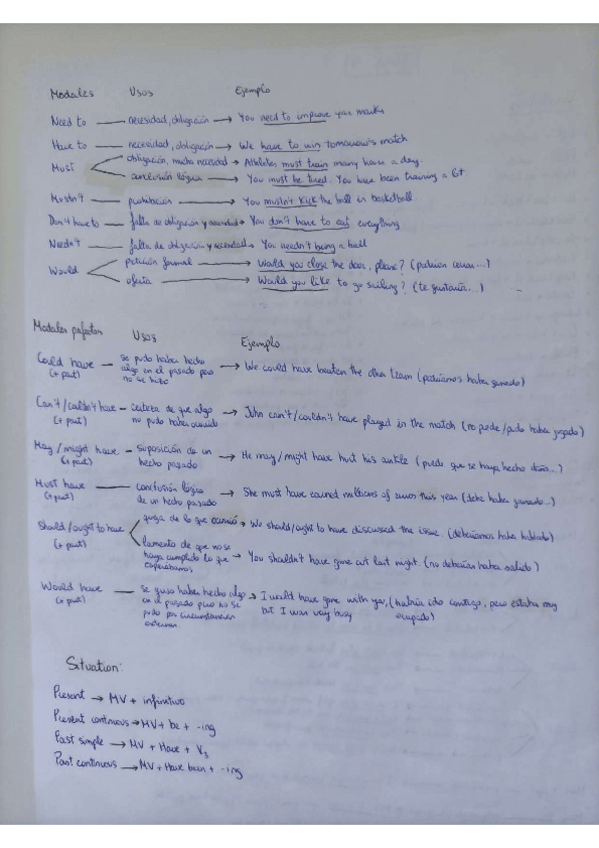 Modales Usos Ejemplo
Need to — necesidad, obligación → You need to improve your marks
Have to — necesidad, obligación → We have to win tomorrow's match
Must obligación, mucha necesidad → Athletes must train many hours a day.
conclusión lógica → You must be tired. You have been training a lot.
Mustn't — prohibición → You mustn't kick the ball in basketball.
Don't have to — falta de obligación y necesidad → You don't have to eat everything
Needn't — falta de obligación y necesidad → You needn't bring a ball
Would petición formal → Would you close the door, please? (podrían cerrar...)
oferta → Would you like to go sailing? (te gustaría...)
Modales perfectos Usos Ejemplo
Could have (+ part) — se pudo haber hecho algo en el pasado pero no se hizo → We could have beaten the other team (podríamos haber ganado)
Can't/couldn't have (+ part) — certeza de que algo no pudo haber ocurrido → John can't/couldn't have played in the match (no puede/pudo haber jugado)
May/might have (+ part) — suposición de un hecho pasado → He may/might have hurt his ankle (puede que se haya hecho daño...)
Must have (+ part) — conclusión lógica de un hecho pasado → She must have earned millions of euros this year (debe haber ganado...)
Should/ought to have (+ part) queja de lo que ocurrió → We should/ought to have discussed the issue. (deberíamos haber hablado)
lamento de que no se haya cumplido lo que esperábamos → You shouldn't have gone out last night. (no deberías haber salido)
Would have (+ part) — se quiso haber hecho algo en el pasado pero no se pudo por circunstancias externas → I would have gone with you, but I was very busy (habría ido contigo, pero estaba muy ocupado)
Situation:
Present → MV + infinitivo
Present continuous → MV + be + -ing
Past simple → MV + Have + V3
Past continuous → MV + Have been + -ing